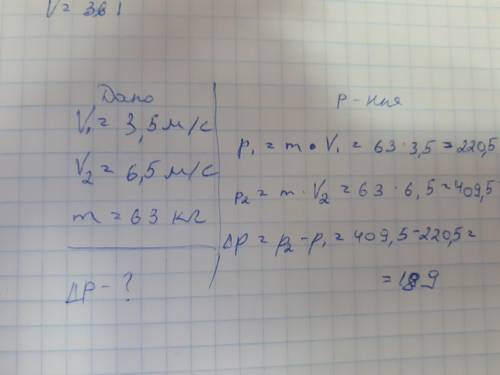 V = 361
Дано
V₁ = 3,5 м/с
V₂ = 6,5 м/с
m = 63 кг
Δp - ?
p₁ = m • V₁ = 63 · 3,5 = 220,5
p₂ = m · V₂ = 63 · 6,5 = 409,5
Δp = p₂ - p₁ = 409,5 - 220,5 =
= 189